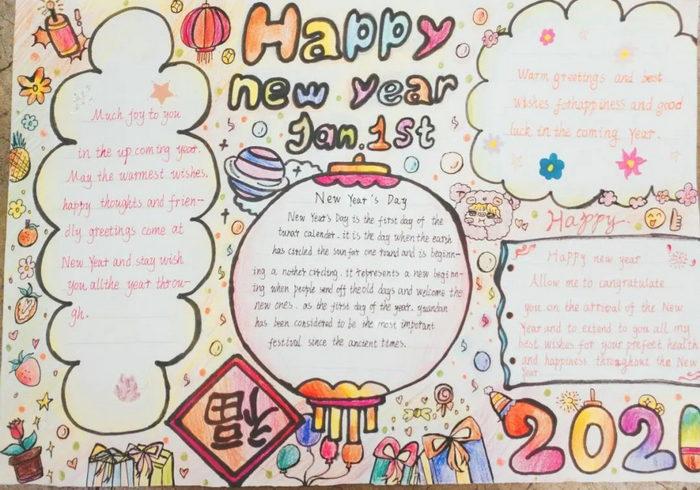 Happy
new year
Jan.1st
Much joy to you
in the up coming year.
May the warmest wishes,
happy thoughts and frien-
dly greetings come at
New Year and stay wish
you all the year throu-
gh.
New Year's Day
New Year's Day is the first day of the
lunar calender. it is the day when the earsh
has circled the sun for one round and is beginn-
ing a nother circling. it represents a new beginn-
ing when people send off the old days and welcome the
new ones. as the first day of the year. yuandan
has been considered to be the most important
festival since the ancient times.
福
Warm greetings and best
wishes for happiness and good
luck in the coming year.
Happy
Happy new year
Allow me to cangratulate
you on the arrival of the New
Year and to extend to you all my
best wishes for your prefect health
and happiness throughout the New
Year
202